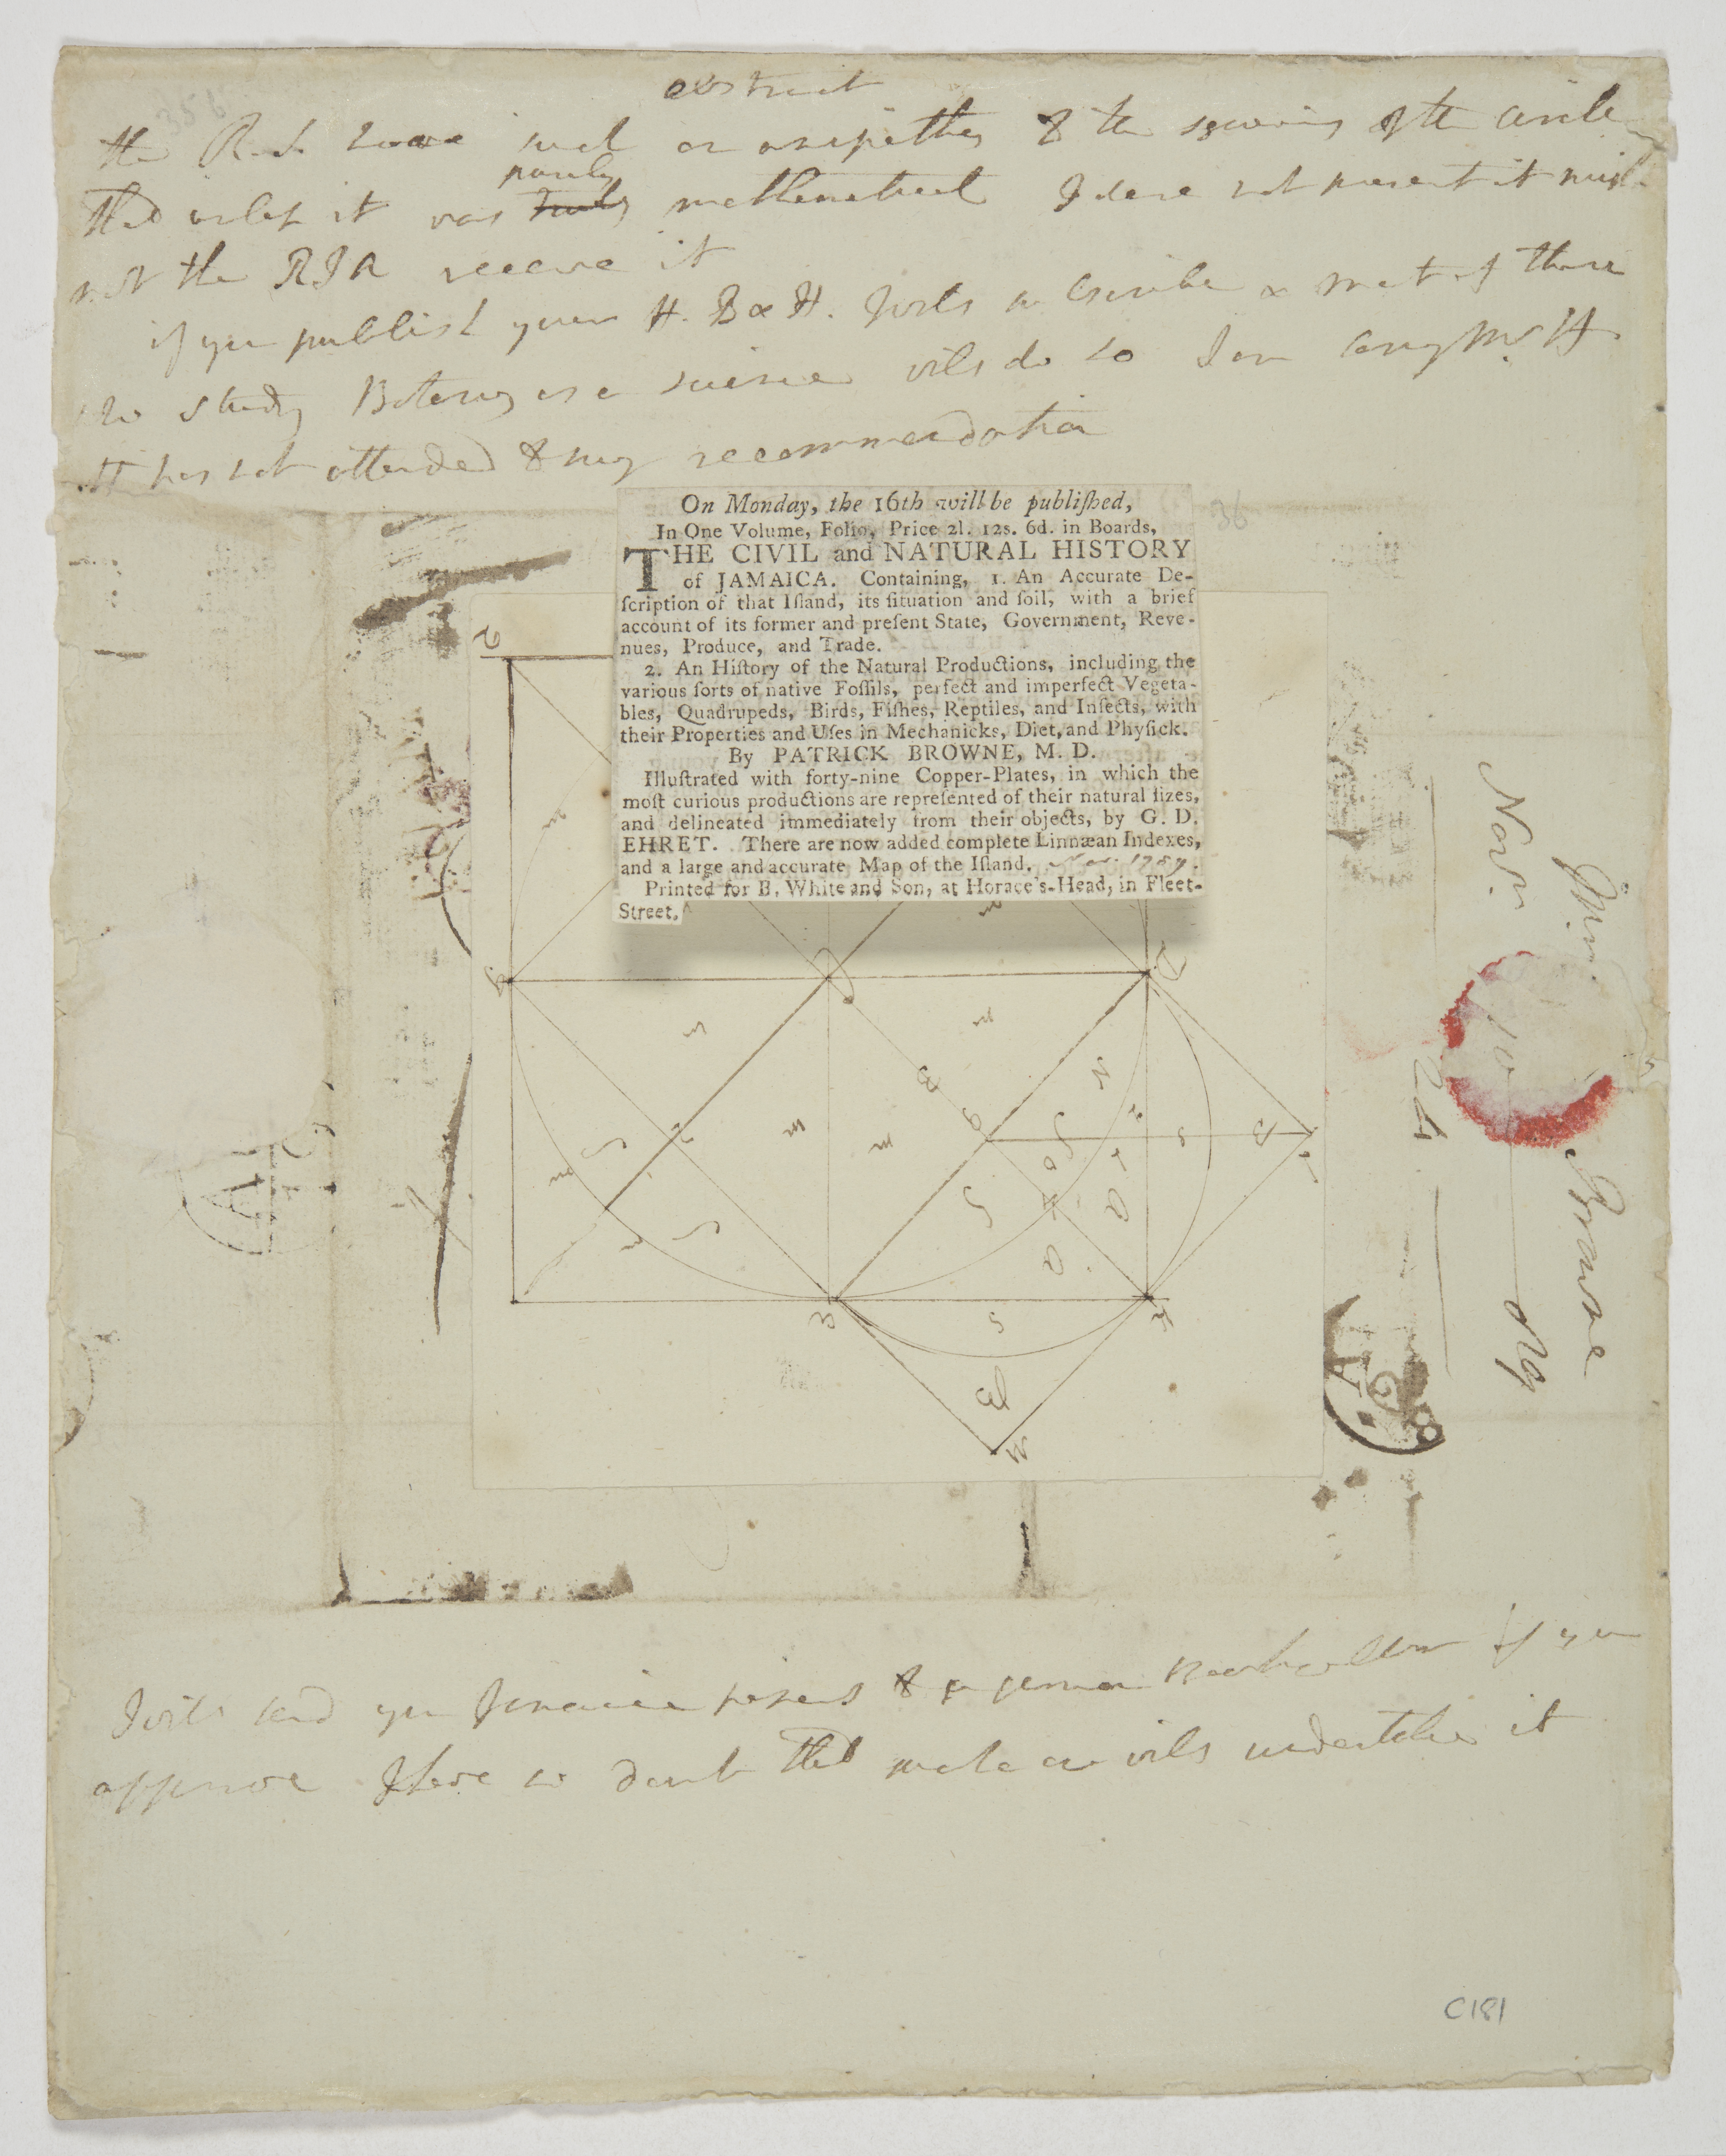 abstract
the R.S. have such an antipathy to the squaring of the circle
that unless it was purely mathematical I dare not present it might
not the RIA receive it
if you publish your H. B & H. I will subscribe & most of those
who study Botany as a science will do so I am sorry Mr. H
H has not attended to my recommendation
36
On Monday, the 16th will be publiſhed,
In One Volume, Folio, Price 2l. 12s. 6d. in Boards,
THE CIVIL and NATURAL HISTORY
of JAMAICA. Containing, 1. An Accurate De-
ſcription of that Iſland, its ſituation and ſoil, with a brief
account of its former and preſent State, Government, Reve-
nues, Produce, and Trade.
2. An Hiſtory of the Natural Productions, including the
various ſorts of native Foſſils, perfect and imperfect Vegeta-
bles, Quadrupeds, Birds, Fiſhes, Reptiles, and Inſects, with
their Properties and Uſes in Mechanicks, Diet, and Phyſick.
By PATRICK BROWNE, M. D.
Illuſtrated with forty-nine Copper-Plates, in which the
moſt curious productions are repreſented of their natural ſizes,
and delineated immediately from their objects, by G. D.
EHRET. There are now added complete Linnæan Indexes,
and a large and accurate Map of the Iſland. Nov. 1789.
Printed for B. White and Son, at Horace's-Head, in Fleet-
Street.
Browne
Novr.
24
89
I will send you Jamaica to a german Bookseller if you
approve I have no doubt that will undertake it
C181